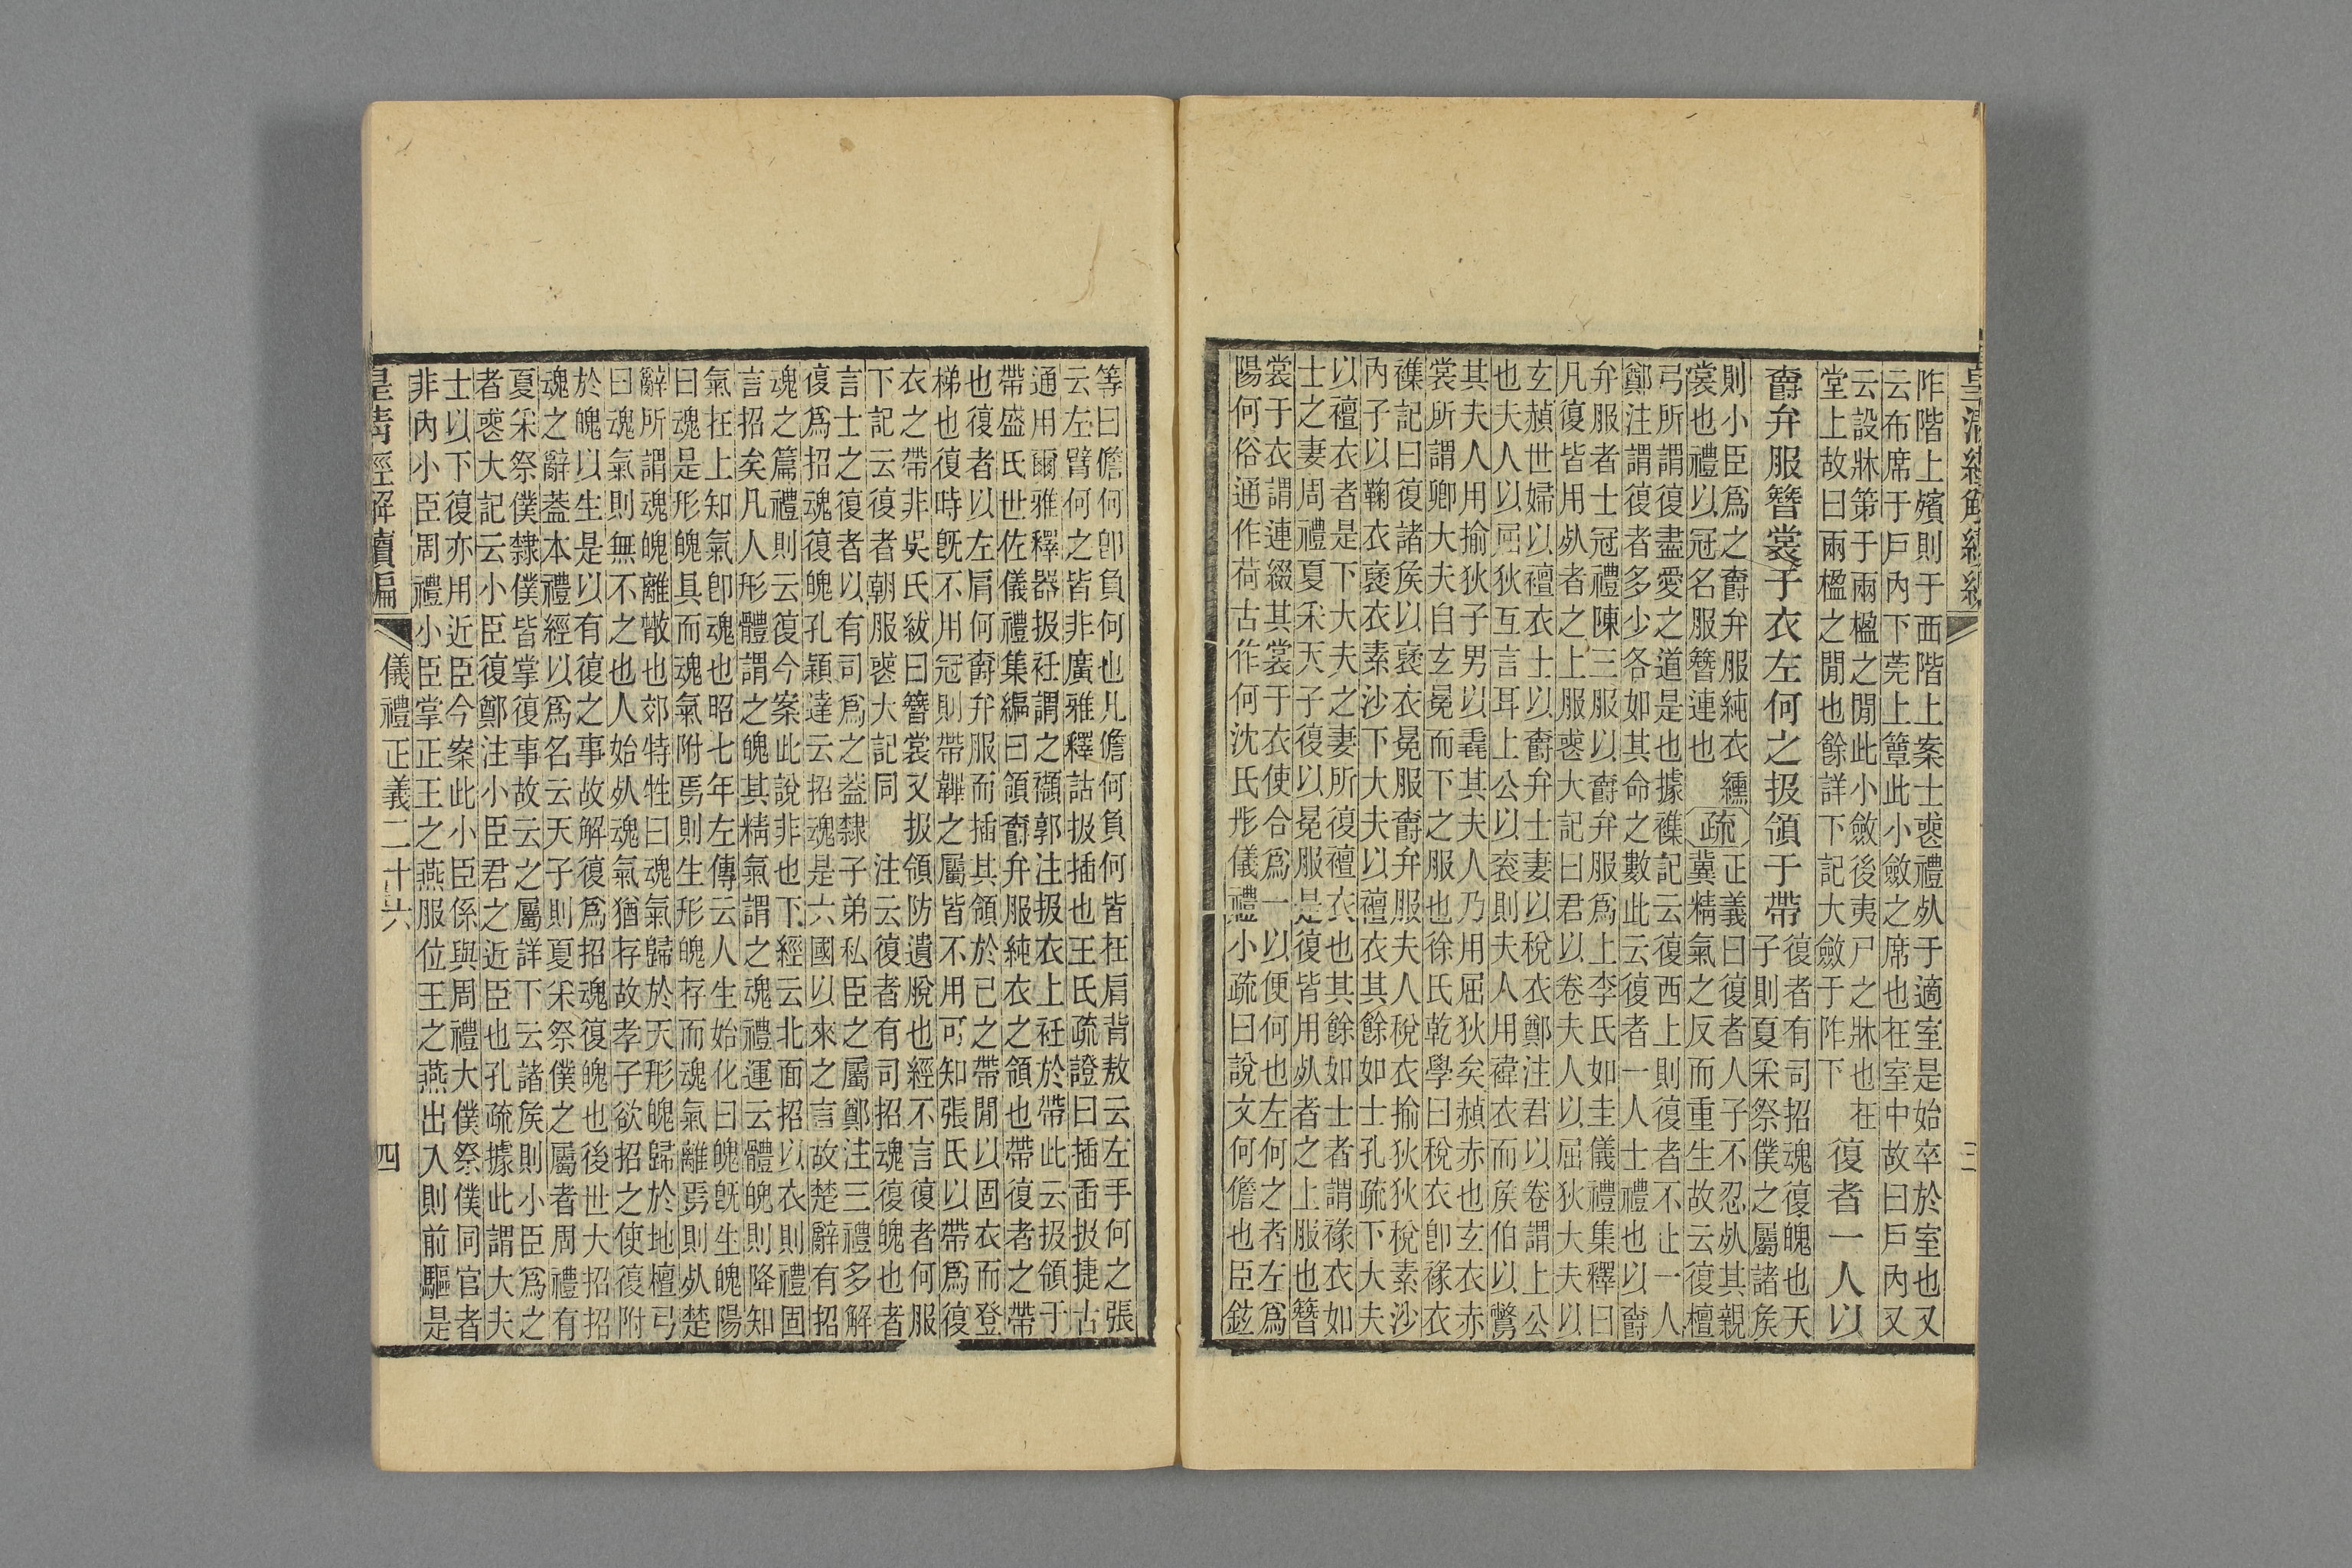 皇清經解續編 三
阼階上殯則于西階上案士䘮禮死于適室是始卒於室也又
云布席于戸內下莞上簟此小斂之席也在室中故曰戸內又
云設牀笫于兩楹之閒此小斂後夷尸之牀也在
堂上故曰兩楹之閒也餘詳下記大斂于阼下
復者一人以
爵弁服簪裳于衣左何之扱領于帶
復者有司招魂復魄也天
子則夏采祭僕之屬諸矦
則小臣爲之爵弁服純衣纁
裳也禮以冠名服簪連也
疏
正義曰復者人子不忍死其親
冀精氣之反而重生故云復檀
弓所謂復盡愛之道是也據襍記云復西上則復者不止一人
鄭注謂復者多少各如其命之數此云復者一人士禮也以爵
弁服者士冠禮陳三服以爵弁服爲上李氏如圭儀禮集釋曰
凡復皆用死者之上服䘮大記曰君以卷夫人以屈狄大夫以
玄赬世婦以襢衣士以爵弁士妻以稅衣鄭注君以卷謂上公
也夫人以屈狄互言耳上公以衮則夫人用褘衣而矦伯以鷩
其夫人用揄狄子男以毳其夫人乃用屈狄矣赬赤也玄衣赤
裳所謂卿大夫自玄冕而下之服也徐氏乾學曰稅衣卽褖衣
襍記曰復諸矦以襃衣冕服爵弁服夫人稅衣揄狄狄稅素沙
內子以鞠衣襃衣素沙下大夫以襢衣其餘如士孔疏下大夫
以襢衣者是下大夫之妻所復襢衣也其餘如士者謂褖衣如
士之妻周禮夏采天子復以冕服是復皆用死者之上服也簪
裳于衣謂連綴其裳于衣使合爲一以便何也左何之者左爲
陽何俗通作荷古作何沈氏彤儀禮小疏曰說文何儋也臣鉉
等曰儋何卽負何也凡儋何負何皆在肩背敖云左手何之張
云左臂何之皆非廣雅釋詁扱插也王氏疏證曰插臿扱捷古
通用爾雅釋器扱衽謂之襭郭注扱衣上衽於帶此云扱領于
帶盛氏世佐儀禮集編曰領爵弁服純衣之領也帶復者之帶
也復者以左肩何爵弁服而插其領於己之帶閒以固衣而登
梯也復時旣不用冠則帶韠之屬皆不用可知張氏以帶爲復
衣之帶非吳氏紱曰簪裳又扱領防遺脫也經不言復者何服
下記云復者朝服䘮大記同 注云復者有司招魂復魄也者
言士之復者以有司爲之葢隸子弟私臣之屬鄭注三禮多解
復爲招魂復魄孔穎達云招魂是六國以來之言故楚辭有招
魂之篇禮則云復今案此說非也下經云北面招以衣則禮固
言招矣凡人形體謂之魄其精氣謂之魂禮運云體魄則降知
氣在上知氣卽魂也昭七年左傳云人生始化曰魄旣生魄陽
曰魂是形魄具而魂氣附焉則生形魄存而魂氣離焉則死楚
辭所謂魂魄離散也郊特牲曰魂氣歸於天形魄歸於地檀弓
曰魂氣則無不之也人始死魂氣猶存故孝子欲招之使復附
於魄以生是以有復之事故解復爲招魂復魄也後世大招招
魂之辭葢本禮經以爲名云天子則夏采祭僕之屬者周禮有
夏采祭僕隸僕皆掌復事故云之屬詳下云諸矦則小臣爲之
者䘮大記云小臣復鄭注小臣君之近臣也孔疏據此謂大夫
士以下復亦用近臣今案此小臣係與周禮大僕祭僕同官者
非內小臣周禮小臣掌正王之燕服位王之燕出入則前驅是
皇清經解續編 儀禮正義二十六 四